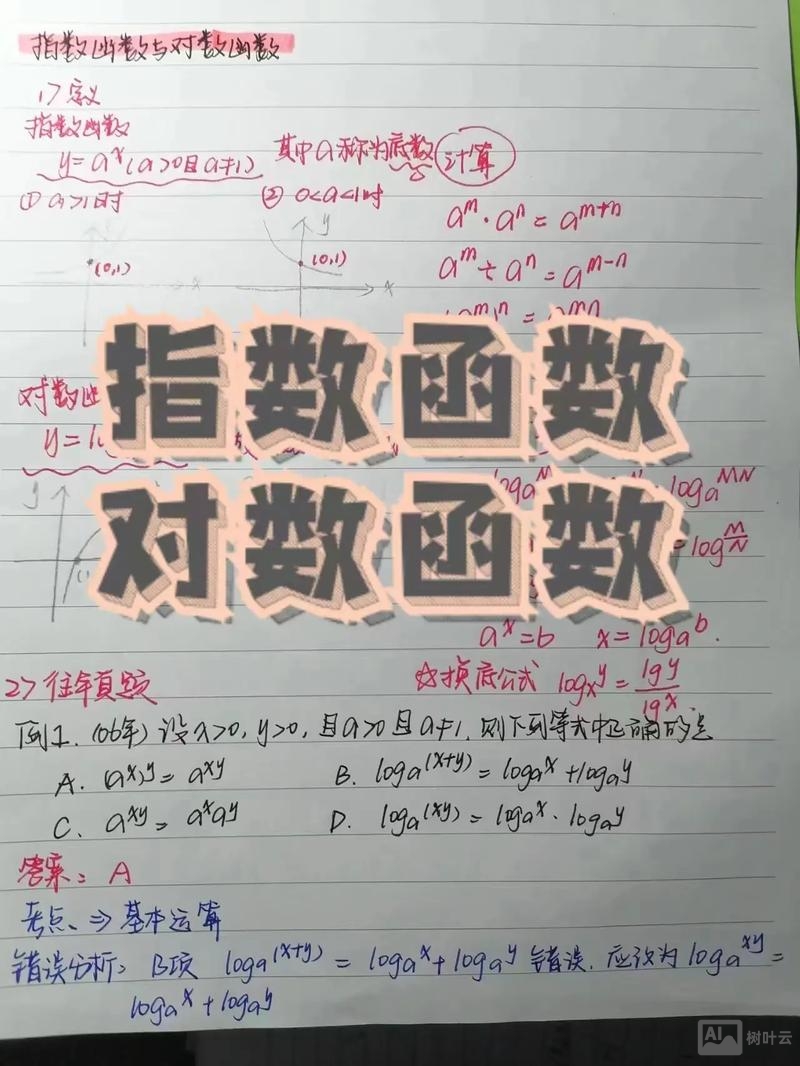 指数函数与对数函数
1> 定义
指数函数
y=a^x (a>0且a≠1) 其中a称为底数 计算
① a>1时 ② 0<a<1时
a^m·a^n=a^{m+n}
y
(0,1) (0,1)
a^m÷a^n=a^{m-n}
x x
指数函数
对数函数
y
log_a^{MN}
log^{M/N}
a^x=b x=log_a^b.
☆换底公式 log_x^y=lg^y/lg^x.
2> 往年真题
例1. (06年) 设x>0, y>0, 且a>0且a≠1, 则下列等式中正确的是
A. (a^x)^y=a^{xy} B. log_a^{(x+y)}=log_a^x+log_a^y
C. a^{xy}=a^x a^y D. log_a^{(xy)}=log_a^x·log_a^y
答案: A
考点 ⇒ 基本运算
错误分析: B项 log_a^{(x+y)}=log_a^x+log_a^y 错误. 应改为log_a^{xy}=
log_a^x+log_a^y
AI 树叶云